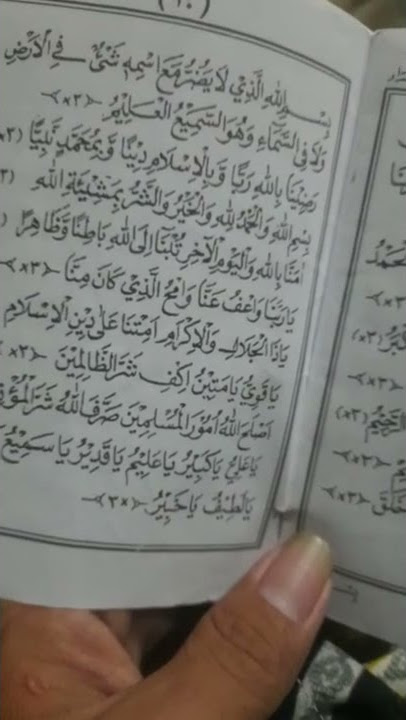 (١٠)
بِسْمِ اللهِ الَّذِي لَا يَضُرُّ مَعَ اسْمِهِ شَيْئٌ فِى الْاَرْضِ
وَلَا فِى السَّمَاءِ وَهُوَ السَّمِيْعُ الْعَلِيْمُ (٣×)
رَضِيْنَا بِاللهِ رَبًّا وَبِالْاِسْلَامِ دِيْنًا وَبِمُحَمَّدٍ نَبِيًّا (٣×)
بِسْمِ اللهِ وَالْحَمْدُ لِلهِ وَالْخَيْرُ وَالشَّرُّ بِمَشِيْئَةِ اللهِ
اٰمَنَّا بِاللهِ وَالْيَوْمِ الْاٰخِرِ تُبْنَا اِلَى اللهِ بَاطِنًا وَظَاهِرًا
يَا رَبَّنَا وَاعْفُ عَنَّا وَامْحُ الَّذِي كَانَ مِنَّا (٣×)
يَاذَا الْجَلَالِ وَالْاِكْرَامِ اَمِتْنَا عَلَى دِيْنِ الْاِسْلَامِ
يَا قَوِيُّ يَا مَتِيْنُ اِكْفِ شَرَّ الظَّالِمِيْنَ (٣×)
اَصْلَحَ اللهُ اُمُوْرَ الْمُسْلِمِيْنَ صَرَفَ اللهُ شَرَّ
يَا عَلِيُّ يَا كَبِيْرُ يَا عَلِيْمُ يَا قَدِيْرُ يَا سَمِيْعُ
يَا لَطِيْفُ يَا خَبِيْرُ (٣×)